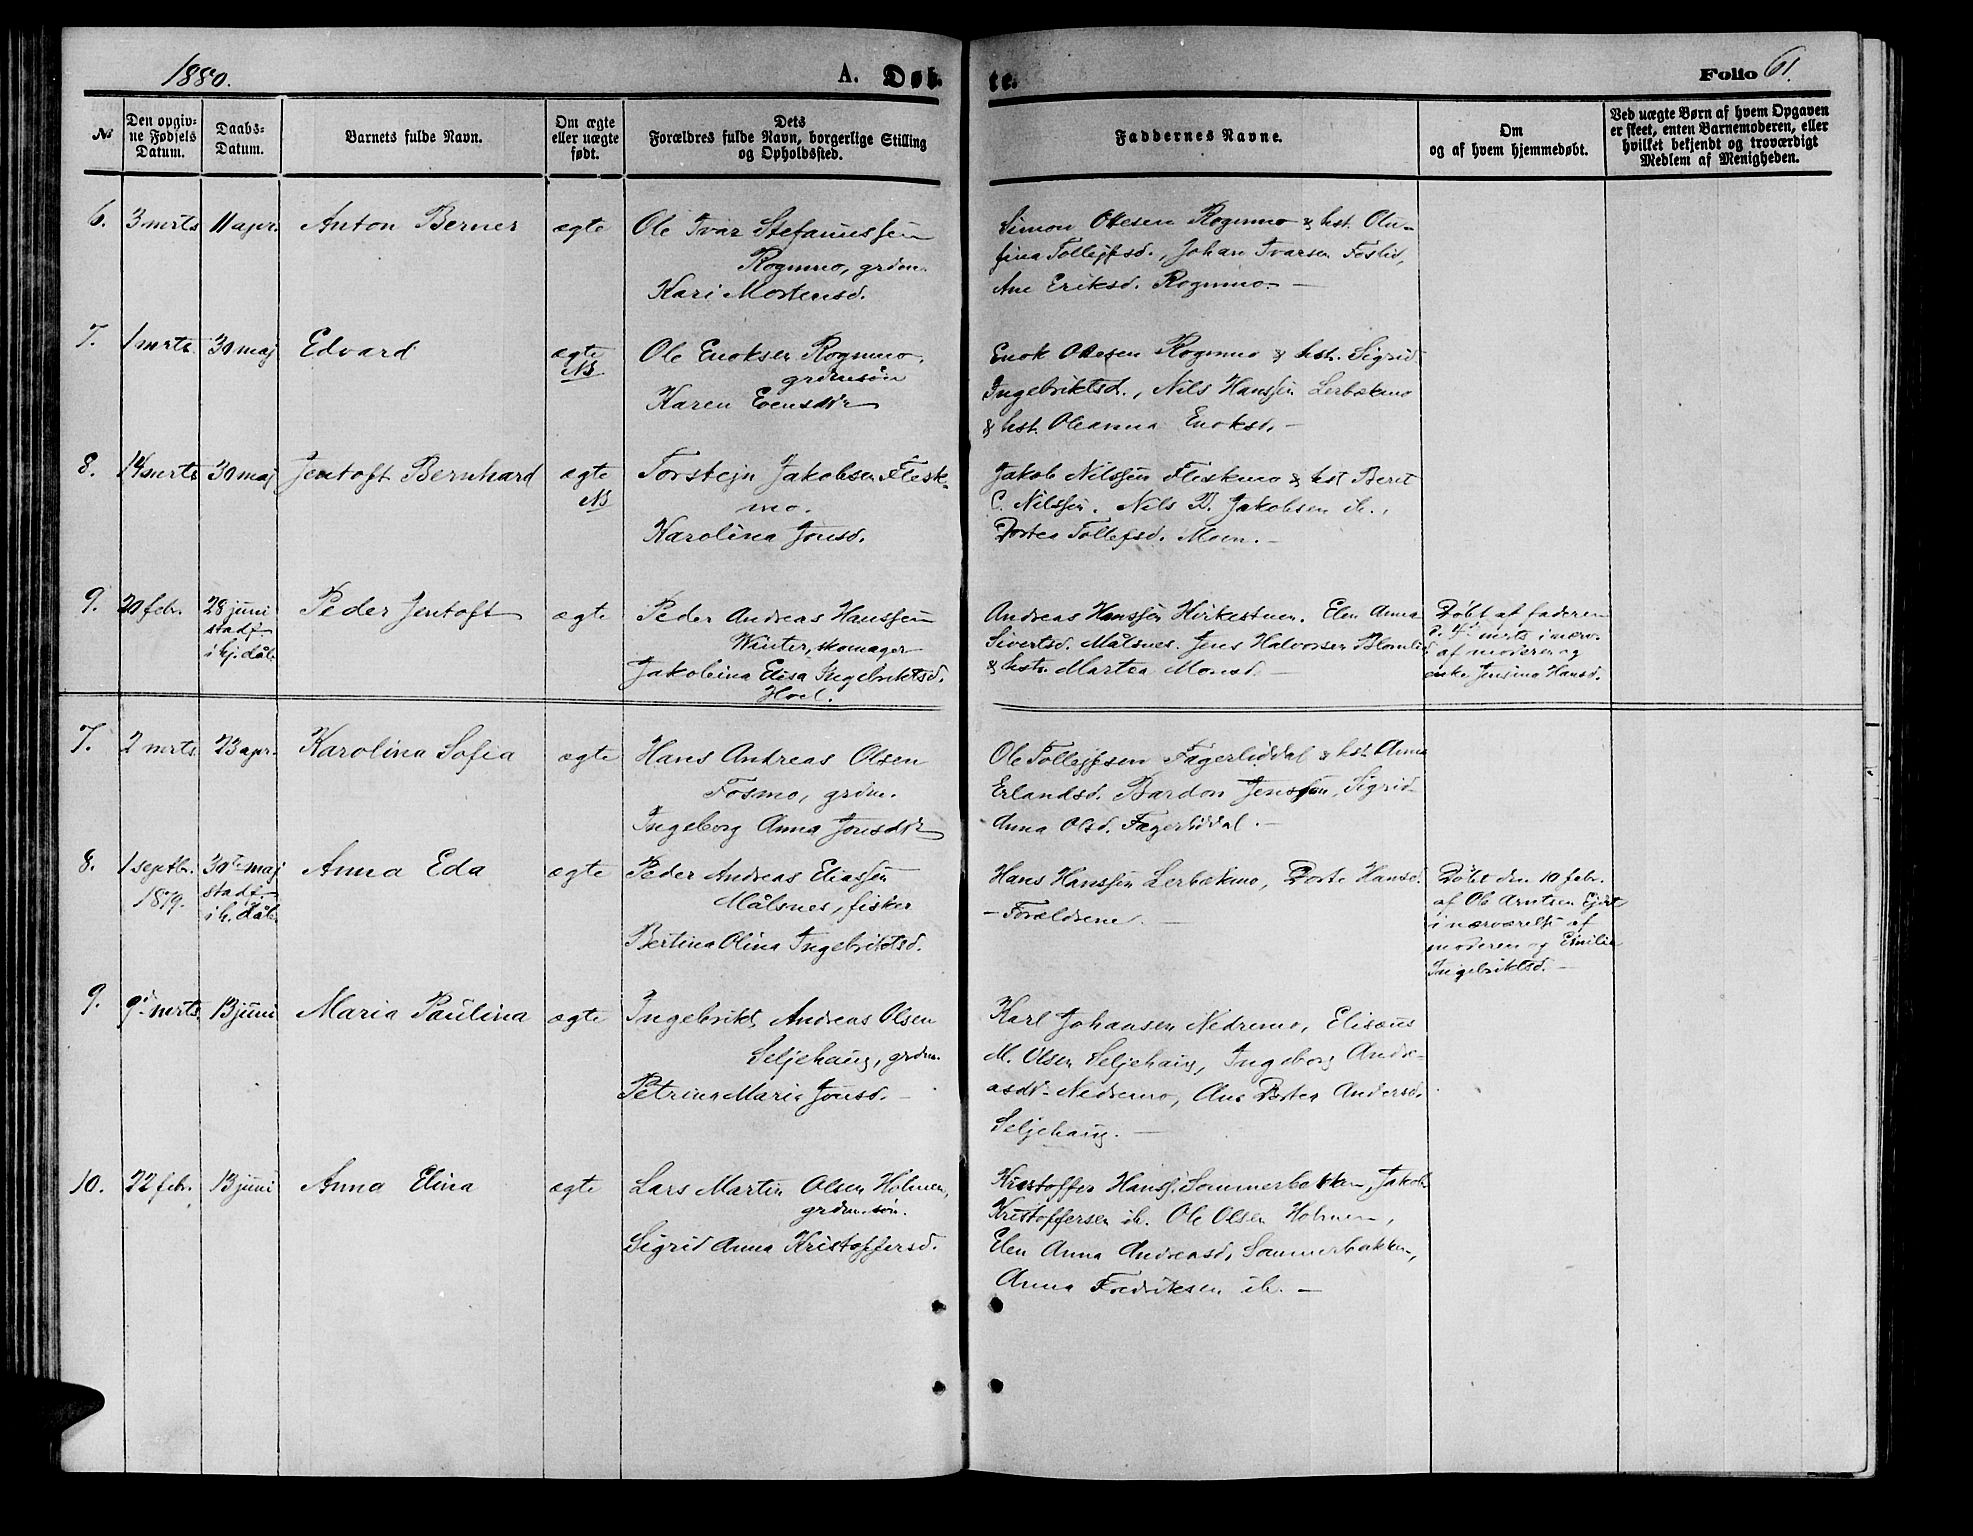 1880.
A. Døb-
te.
Folio 61.
№
Den opgiv-
ne Fødsels
Datum.
Daabs-
Datum.
Barnets fulde Navn.
Om ægte
eller uægte
født.
Dets
Forældres fulde Navn, borgerlige Stilling
og Opholdssted.
Faddernes Navne.
Om
og af hvem hjemmedøbt.
Ved uægte Børn af hvem Opgaven
er skeet, enten Barnemoderen, eller
hvilket bekjendt og troværdigt
Medlem af Menigheden.
6. 3 mrts 11 apr. Anton Berner ægte
Ole Ivar Stefanussen
Rognmo, grdm.
Kari Mortensd.
Simon Olesen Rognmo & hst. Olu-
fina Tollefsd., Johan Ivarsen Foslid,
Ane Eriksd. Rognmo. —
7. 1 mrts. 30 maj Edvard ægte
NB.
Ole Enoksen Rognmo,
grdmsøn
Karen Evensdtr
Enok Olesen Rognmo & hst. Sigrid
Ingebriktsd., Nils Hanssen Lerbækmo
& hst. Oleanna Enoksd. —
8. 14 mrts 30 maj Jentoft Bernhard ægte
NB
Torstejn Jakobsen Flesk-
mo.
Karolina Jonsd.
Jakob Nilssen Fleskmo & hst Beret
C. Nilssen. Nils B. Jakobsen ib.,
Dortea Tollefsd. Moen. —
9. 20 febr. 28 juni
stadf.
i hj. dåb
Peder Jentoft ægte
Peder Andreas Hanssen
Winter, skomager
Jakobina Elisa Ingebriktsd.
Hoel.
Andreas Hanssen Kirkestuen. Elen Anna
Sivertsd. Målsnes. Jens Halvorsen Blomlid
& hstr. Martea Monsd. —
Døbt af faderen
d. 4de mrts i nærv.
af moderen og
enke Jensina Hansd.
7. 2 mrts. 23 apr. Karolina Sofia ægte
Hans Andreas Olsen
Fosmo, grdm.
Ingeborg Anna Jonsdtr
Ole Tollefsen Fagerliddal & hst. Anna
Erlandsd. Bardon Jenssen, Sigrid
Anna Olsd. Fagerliddal. —
8. 1 septbr.
1879.
30te maj
stadf.
i h. dåb
Anna Eda ægte
Peder Andreas Eliassen
Målsnes, fisker
Bertina Olina Ingebriktsd.
Hans Hanssen Lerbækmo, Dorte Hansd.
— Forældrene. —
Døbt den 10 febr.
af Ole Arntsen
i nærværelse af
moderen og Emilie
Ingebriktsd. —
9. 9d mrts. 13 juni Maria Paulina ægte
Ingebrikt Andreas Olsen
Seljehaug, grdm.
Petrina Maria Jonsd. —
Karl Johansen Nedremo, Elisæus
M. Olsen Seljehaug, Ingeborg Andre-
asdtr. Nedremo, Ane Dortea Andersd.
Seljehaug. —
10. 22 febr. 13 juni Anna Elina ægte
Lars Martin Olsen Holmen,
grdm. søn.
Sigrid Anna Kristoffersd.
Kristoffer Hanss. Sommerbakken, Jakob
Kristoffersen ib. Ole Olsen Holmen,
Elen Anna Andreasd. Sommerbakken,
Anna Fredriksen ib. —